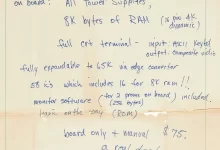 on board: All Power Supplies,
8K bytes of RAM (16 pin 4K dynamic)
full crt terminal - input ASCII Keybd
output composite video
fully expandable to 65K via edge connector
58 ic's which includes 16 for 8K ram!!
monitor software (for 2 proms on board) included.
(256 bytes)
basic on the way (ROM)
board only + manual $75.
a real deal